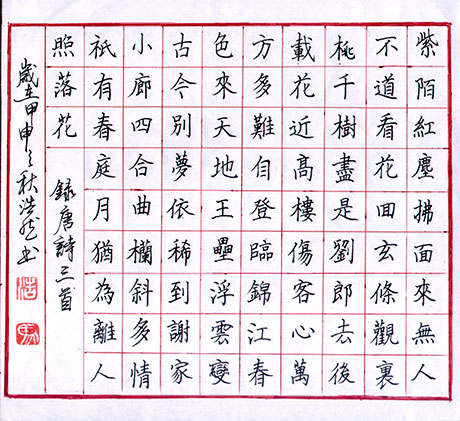 紫陌紅塵拂面來無人
不道看花回玄條觀裏
桃千樹盡是劉郎去後
載花近高樓傷客心萬
方多難自登臨錦江春
色來天地王壘浮雲變
古今別夢依稀到謝家
小廊四合曲欄斜多情
祇有春庭月猶為離人
照落花
録唐詩三首
歲在甲申之秋浩然书
浩